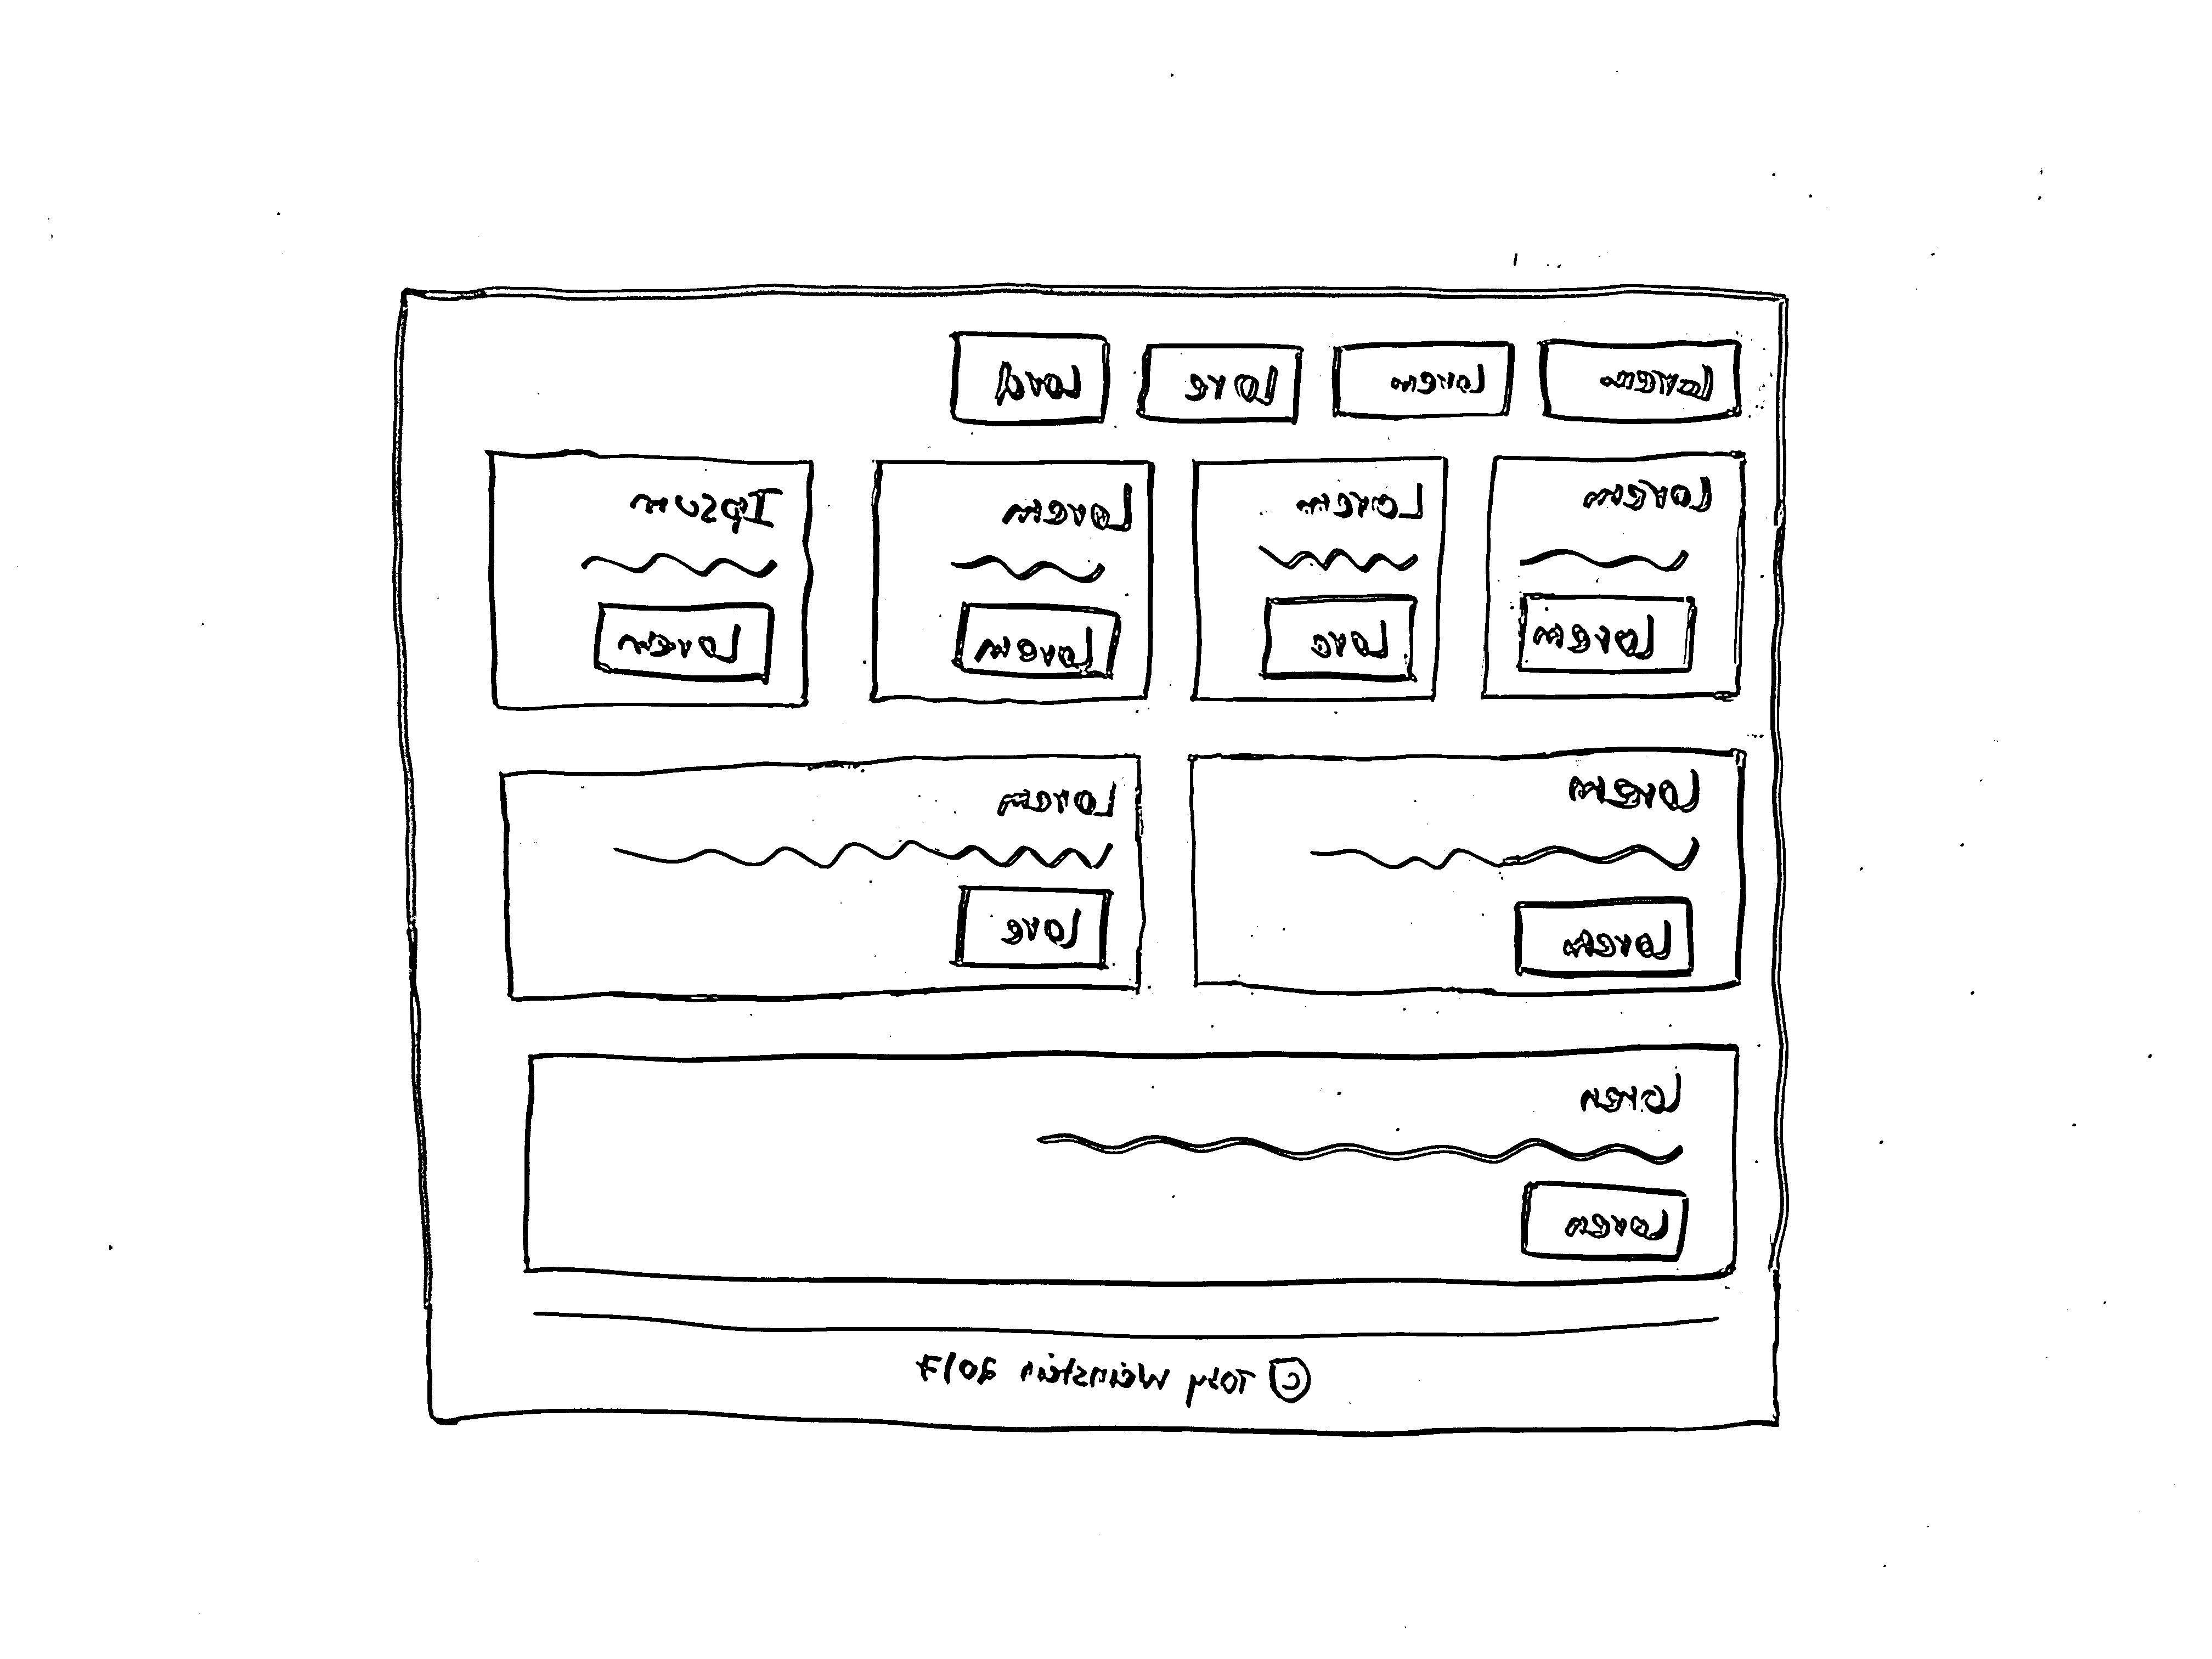 Lorem Lorem Lore Lord
Lorem Lorem Lorem Ipsum
Lorem Lore Lorem Lorem
Lorem Lorem
Lorem Lore
Lorem
Lorem
© Weinstein 2017